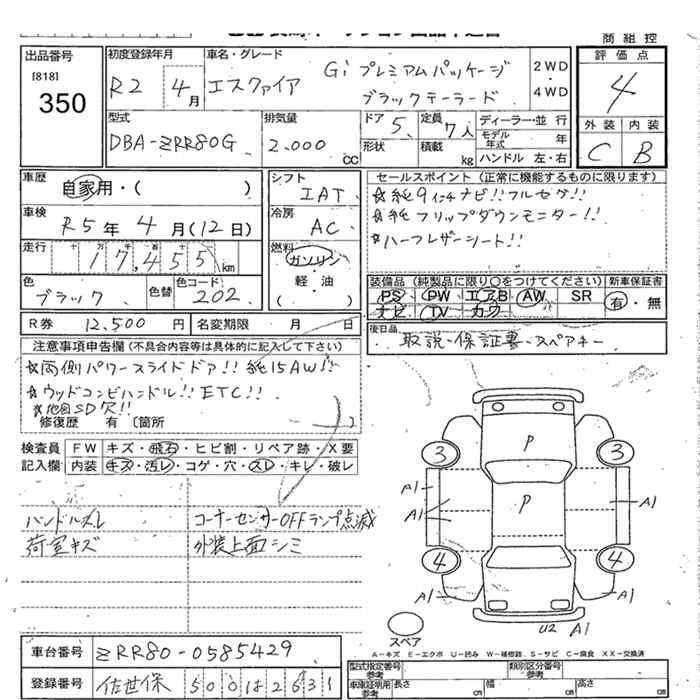 商組控
出品番号
[818]
350
初度登録年月
R2 4月
車名・グレード
エスクァイア Gi プレミアムパッケージ
ブラックテーラード
2WD
・
4WD
評価点
4
外装 内装
C B
型式
DBA-ZRR80G
排気量
2.000 CC
ドア 5
形状
定員 7人
積載 kg
ディーラー・並行
モデル年式 年
ハンドル 左・右
車歴
自家用・( )
シフト
IAT
セールスポイント(正常に機能するものに限ります)
☆純9インチナビ!!フルセグ!!
☆純フリップダウンモニター!!
☆ハーフレザーシート!!
車検
R5年 4月(12日)
冷房
AC
走行
十万千百十
17,455km
燃料
ガソリン
・
軽・油
( )
色
ブラック
色替
色コード
202
装備品(純製品に限り○をつけてください)
新車保証書
PS PW エアB AW SR
ナビ TV カワ
有・無
R券 12,500円
名変期限 月 日
後日品
取説・保証書・スペアキー
注意事項申告欄(不具合内容等は具体的に記入して下さい)
☆両側パワースライドドア!!純15AW!!
☆ウッドコンビハンドル!!ETC!!
☆地図SD欠!!
修復歴 有〔箇所 〕
検査員
記入欄
FW キズ・飛石・ヒビ割・リペア跡・X要
内装 キズ・汚レ・コゲ・穴・スレ・キレ・破レ
ハンドルスレ
コーナーセンサーOFFランプ点滅
荷室キズ
外装上面シミ
P
3 3
P
A1
A1
A1
4 4
A1
A1
U2 A1
スペア
A-キズ E-エクボ U-凹み W-補修跡 S-サビ C-腐食 XX-交換済
車台番号
ZRR80-0585429
登録番号
佐世保 500は2631
型式指定番号
参考
類別区分番号
参考
車庫証明用
参考
長さ cm
幅 cm
高さ cm